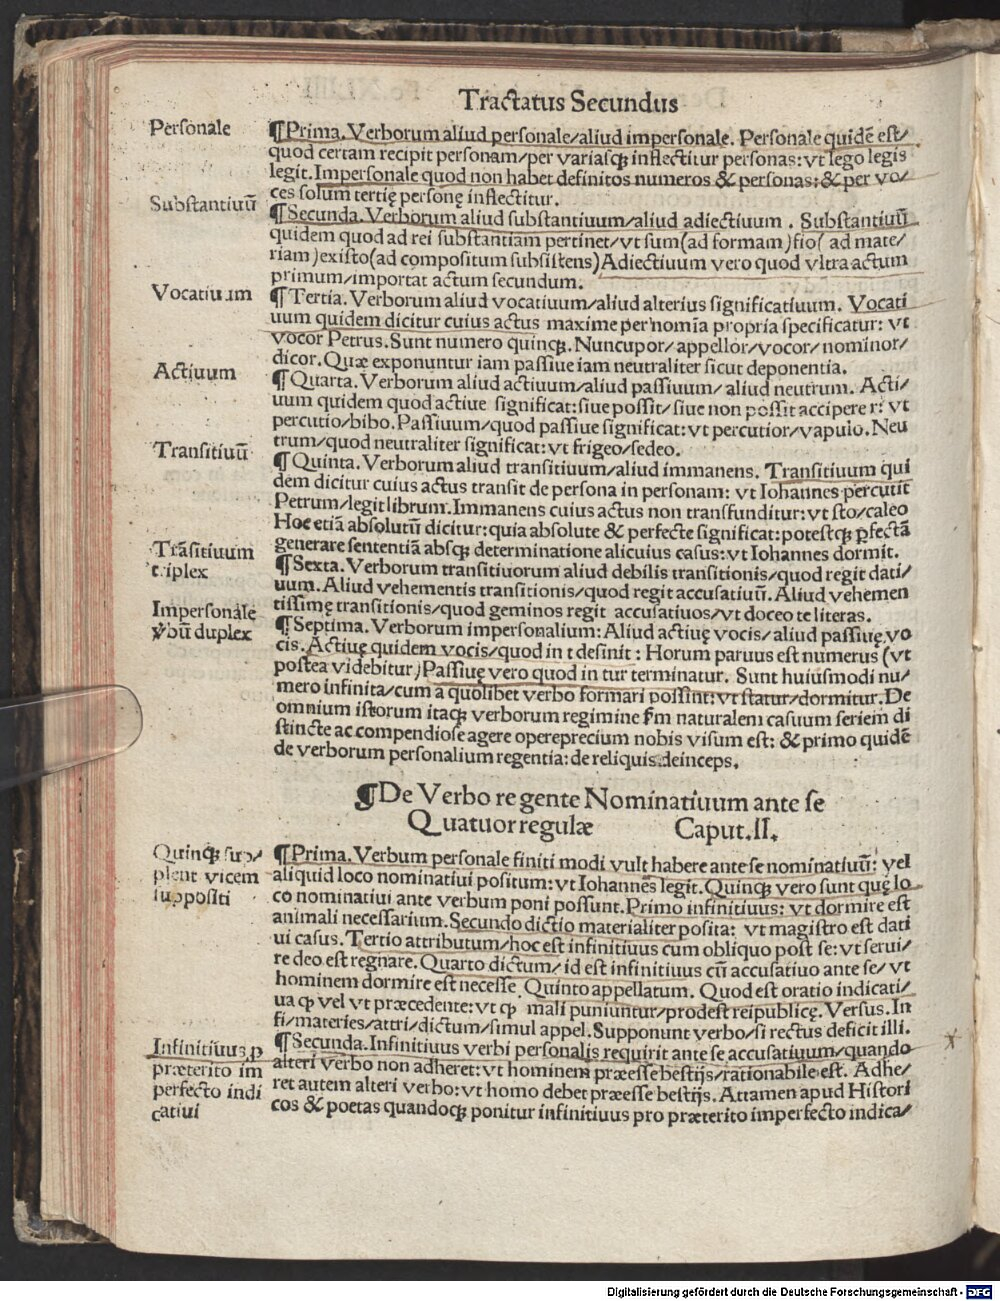 Tractatus Secundus
Personale
¶Prima. Verborum aliud personale/aliud impersonale. Personale quidē est/
quod certam recipit personam/per variasqꝫ inflectitur personas: vt lego legis
legit. Impersonale quod non habet definitos numeros & personas: & per vo/
ces solum tertię personę inflectitur.
Substantiuū
¶Secunda. Verborum aliud substantiuum/aliud adiectiuum. Substantiuū
quidem quod ad rei substantiam pertinet/vt sum(ad formam)fio( ad mate/
riam)existo(ad compositum subsistens)Adiectiuum vero quod vltra actum
primum/importat actum secundum.
Vocatiuum
¶Tertia. Verborum aliud vocatiuum/aliud alterius significatiuum. Vocati
uum quidem dicitur cuius actus maxime per nomīa propria specificatur: vt
vocor Petrus. Sunt numero quinqꝫ. Nuncupor/appellor/vocor/nominor/
dicor. Quæ exponuntur iam passiue iam neutraliter sicut deponentia.
Actiuum
¶Quarta. Verborum aliud actiuum/aliud passiuum/aliud neutrum. Acti/
uum quidem quod actiue significat: siue possit/siue non possit accipere r: vt
percutio/bibo. Passiuum/quod passiue significat: vt percutior/vapulo. Neu
trum/quod neutraliter significat: vt frigeo/sedeo.
Transitiuū
¶Quinta. Verborum aliud transitiuum/aliud immanens. Transitiuum qui
dem dicitur cuius actus transit de persona in personam: vt Iohannes percutit
Petrum/legit librum. Immanens cuius actus non transfunditur: vt sto/caleo
Hoc etiā absolutū dicitur: quia absolute & perfecte significat: potestqꝫ ꝑfectā
generare sententiā absqꝫ determinatione alicuius casus: vt Iohannes dormit.
Trāsitiuum
triplex
¶Sexta. Verborum transitiuorum aliud debilis transitionis/quod regit dati/
uum. Aliud vehementis transitionis/quod regit accusatiuū. Aliud vehemen
tissimę transitionis/quod geminos regit accusatiuos/vt doceo te literas.
Impersonale
v̄bū duplex
¶Septima. Verborum impersonalium: Aliud actiuę vocis/aliud passiuę vo
cis. Actiuę quidem vocis/quod in t desinit: Horum paruus est numerus (vt
postea videbitur)Passiuę vero quod in tur terminatur. Sunt huiusmodi nu/
mero infinita/cum a quolibet verbo formari possint: vt statur/dormitur. De
omnium istorum itaqꝫ verborum regimine ẜm naturalem casuum seriem di
stincte ac compendiose agere operepræcium nobis visum est: & primo quidē
de verborum personalium regentia: de reliquis deinceps.
¶De Verbo regente Nominatiuum ante se
Quatuor regulæ Caput.II.
Quinqꝫ sup/
plent vicem
suppositi
¶Prima. Verbum personale finiti modi vult habere ante se nominatiuū: vel
aliquid loco nominatiui positum: vt Iohannes legit. Quinqꝫ vero sunt quę lo
co nominatiui ante verbum poni possunt. Primo infinitiuus: vt dormire est
animali necessarium. Secundo dictio materialiter posita: vt magistro est dati
ui casus. Tertio attributum/hoc est infinitiuus cum obliquo post se: vt serui/
re deo est regnare. Quarto dictum/id est infinitiuus cū accusatiuo ante se/vt
hominem dormire est necesse. Quinto appellatum. Quod est oratio indicati/
ua ꝙ vel vt præcedente: vt ꝙ mali puniuntur/prodest reipublicę. Versus. In
fi/materies/attri/dictum/simul appel. Supponunt verbo/si rectus deficit illi.
Infinitiuus p
præterito im
perfecto indi
catiui
¶Secunda. Infinitiuus verbi personalis requirit ante se accusatiuum/quando
alteri verbo non adheret: vt hominem præesse bestijs/rationabile est. Adhe/
ret autem alteri verbo: vt homo debet præesse bestijs. Attamen apud Histori
cos & poetas quandoqꝫ ponitur infinitiuus pro præterito imperfecto indica/
Digitalisierung gefördert durch die Deutsche Forschungsgemeinschaft - DFG